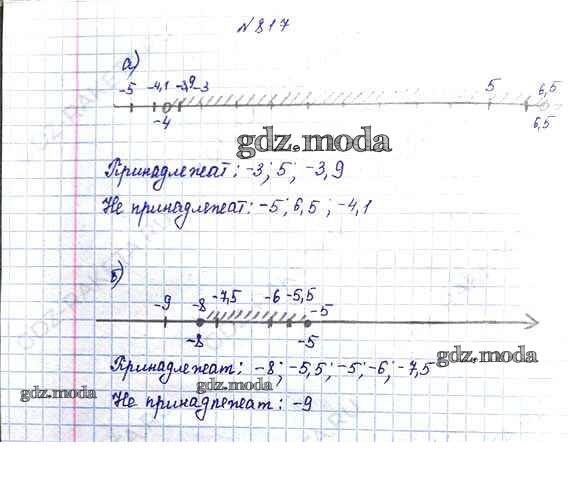 № 817
а)
-5 -4,1 -3,9 -3 5 6,5
-4 6,5
gdz.moda
Принадлежат: -3; 5; -3,9
Не принадлежат: -5; 6,5; -4,1
б)
-9 -8 -7,5 -6 -5,5 -5
-8 -5
gdz.moda
Принадлежат: -8; -5,5; -5; -6; -7,5
gdz.moda
gdz.moda
Не принадлежат: -9